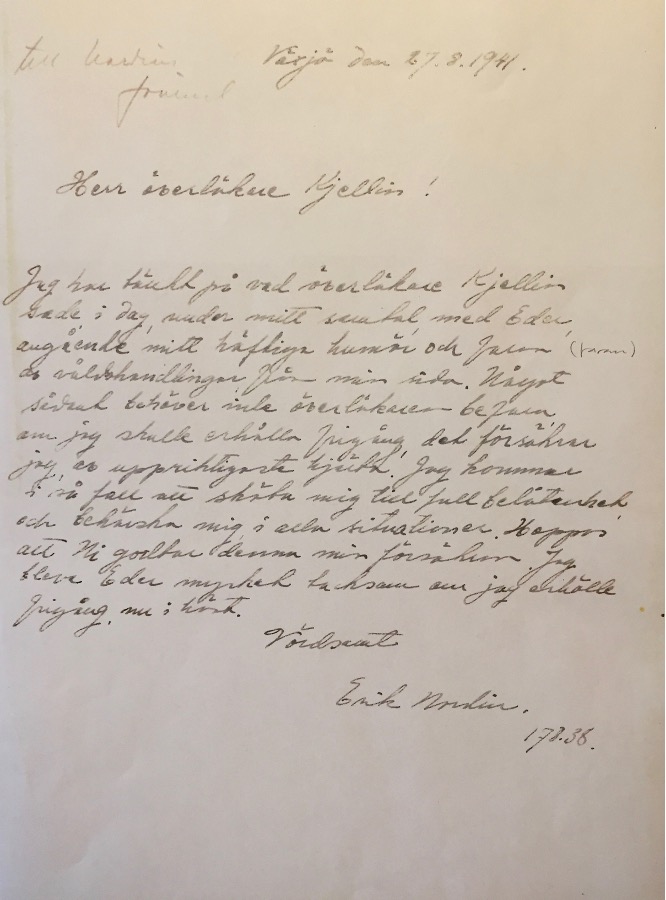 till Nordins
journal
Växjö den 27.8.1941.
Herr överläkare Kjellin!
Jag har tänkt på vad överläkare Kjellin
sade i dag, under mitt samtal med Eder,
angående mitt häftiga humör och faran (faran)
av våldshandlingar från min sida. Något
sådant behöver inte överläkaren befara,
om jag skulle erhålla frigång, det försäkrar
jag av uppriktigaste hjärta. Jag kommer
i så fall att sköta mig till full belåtenhet
och behärska mig i alla situationer. Hoppas
att Ni godtar denna min försäkran. Jag
bleve Eder mycket tacksam om jag erhölle
frigång, nu i höst.
Vördsamt
Erik Nordin.
178.38.